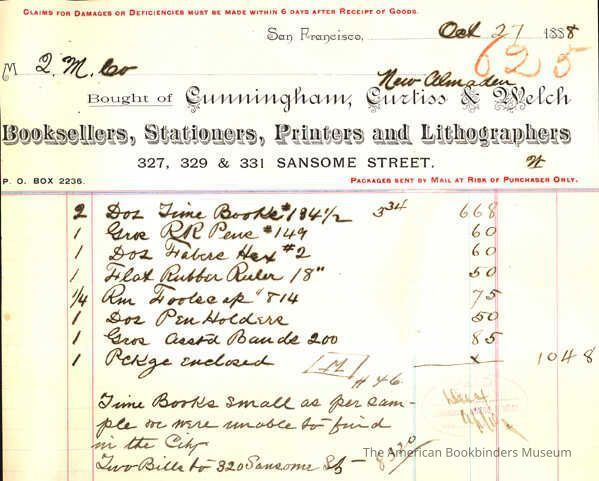 CLAIMS FOR DAMAGES OR DEFICIENCIES MUST BE MADE WITHIN 6 DAYS AFTER RECEIPT OF GOODS.
San Francisco, Oct 27 1888
625
M Q. M. Co
New Almaden
Bought of Cunningham, Curtiss & Welch
Booksellers, Stationers, Printers and Lithographers
327, 329 & 331 SANSOME STREET.
P. O. BOX 2236. PACKAGES SENT BY MAIL AT RISK OF PURCHASER ONLY.
2 Dos Time Books #134 1/2 3 34 668
1 Gros RR Pens #149 60
1 Dos Fabers Hex #2 60
1 Flat Rubber Ruler 18" 50
1/4 Rm Foolscap #814 75
1 Dos Pen Holders 50
1 Gros Asstd Bands 200 85
1 Pckge enclosed M x 1048
#46
Time Books small as per sam-
ple we were unable to find
in the City
Two Bills to 320 Sansome St
The American Bookbinders Museum